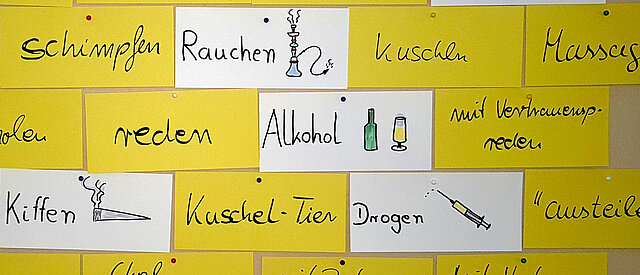 schimpfen
Rauchen
Kuscheln
Massag
olen
reden
Alkohol
mit Vertrauensp.
reden
Kiffen
Kuschel-Tier
Drogen
"austeile